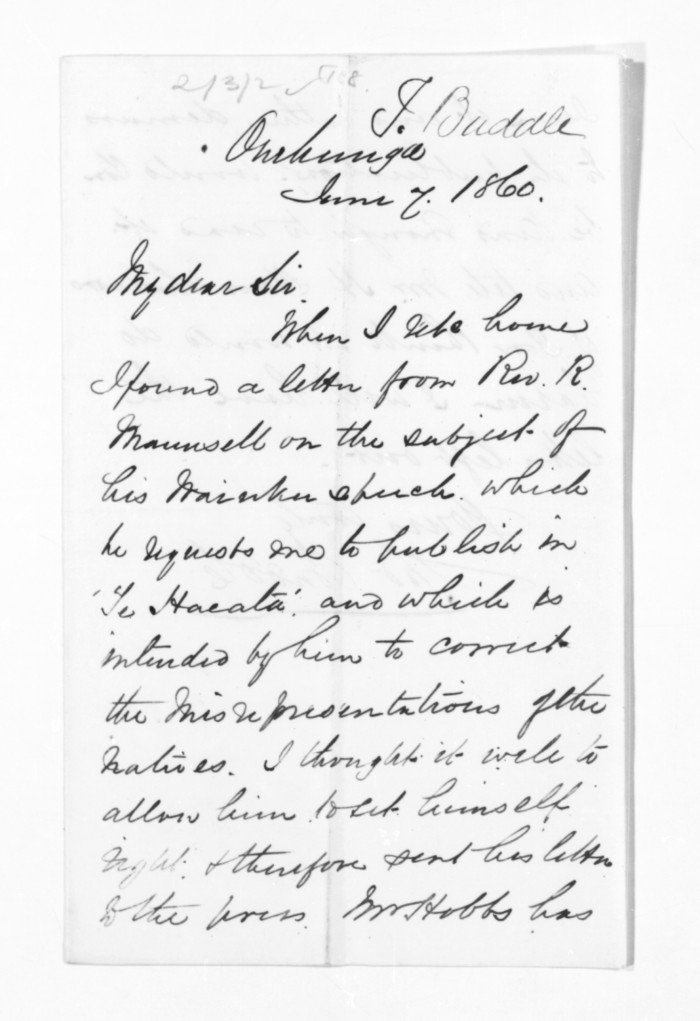 T. Buddle
Onehunga
June 7. 1860.
My dear Sir,
When I retd home
I found a letter from Rev. R.
Maunsell on the subject of
his Waiuku speech which
he requests me to publish in
'Te Haeata'. and which is
intended by him to correct
the misrepresentations of the
natives. I thought it well to
allow him to set himself
right & therefore sent his letter
to the press. Mr Hobbs has